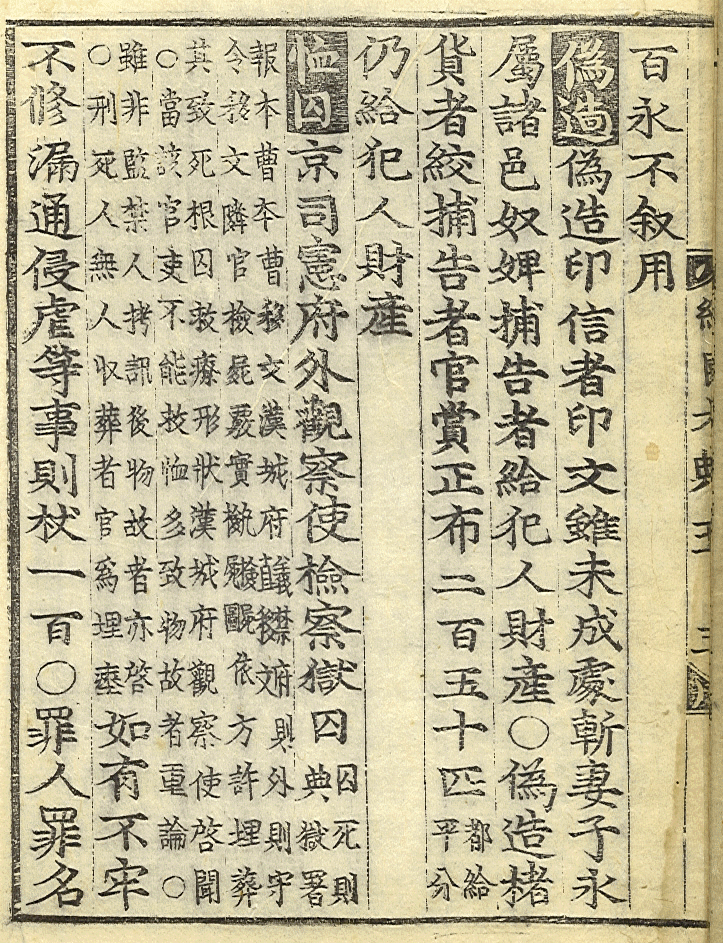 百永不叙用
偽造偽造印信者印文雖未成處斬妻子永
屬諸邑奴婢捕告者給犯人財產○偽造楮
貨者絞捕告者官賞正布二百五十匹都給平分
仍給犯人財產
恤囚京司憲府外觀察使檢察獄囚囚死則典獄署
報本曹本曹移文漢城府 則外則守
令移文隣官檢屍覈實 依方許埋葬
其致死根因救療形狀漢城府觀察使啓聞
○當該官吏不能救恤多致物故者重論○
雖非監禁人拷訊後物故者亦啓
○刑死人無人收葬者官爲埋瘞如有不牢
不修漏通侵虐等事則杖一百○罪人罪名